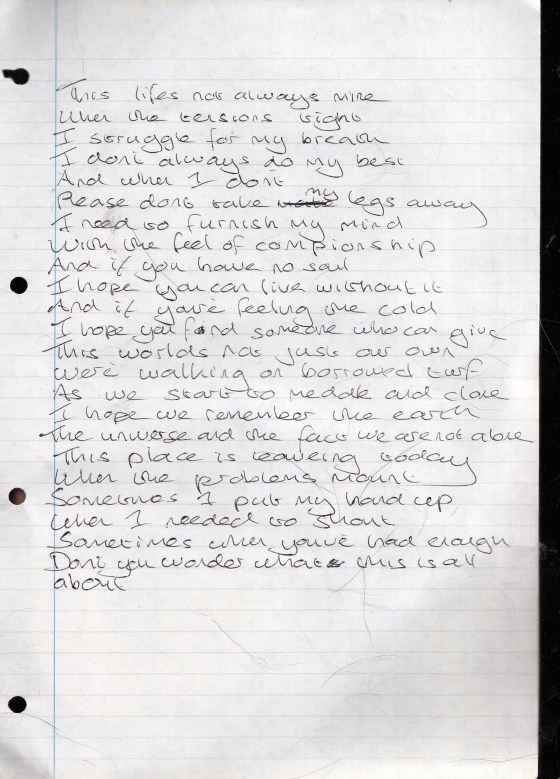 This lifes not always mine
When the tensions tight
I struggle for my breath
I dont always do my best
And when I dont
Please dont take my legs away
I need to furnish my mind
With the feel of compionship
And if you have no soul
I hope you can live without it
And if you're feeling the cold
I hope you find someone who can give
This worlds not just our own
We're walking on borrowed turf
As we start to meddle and clone
I hope we remember the earth
The universe and the fact we are not alone
This place is wavering today
When the problems mount
Sometimes I put my hand up
When I needed to shout
Sometimes when you've had enough
Dont you wonder what this is all
about